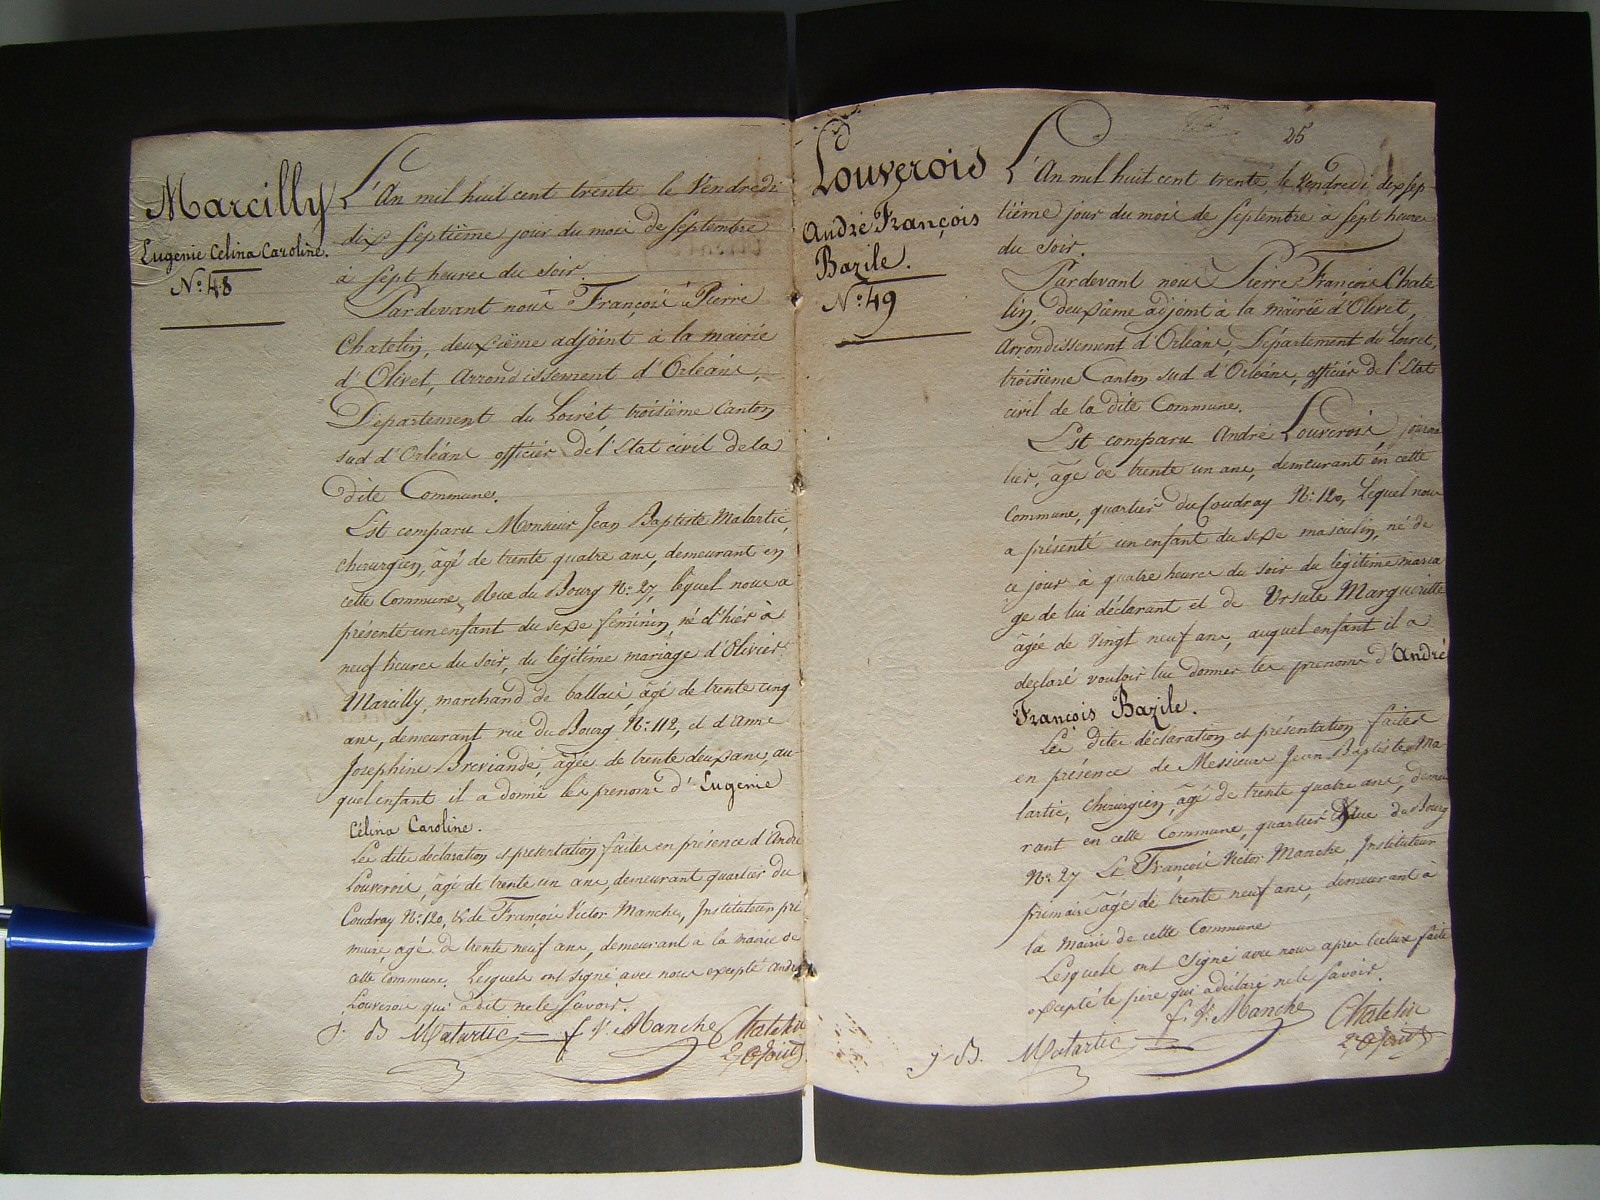 Marcilly
Eugenie Célina Caroline.
N.º 48
L'An mil huit cent trente le Vendredi
dix septième jour du mois de Septembre
à sept heures du soir.
Pardevant nous François Pierre
Chatelin, deuxième adjoint à la mairie
d'Olivet, Arrondissement d'Orléans,
Département du Loiret, troisième Canton
sud d'Orléans officier de l'Etat civil de la
dite Commune.
Est comparu Monsieur Jean Baptiste Malartic,
chirurgien, âgé de trente quatre ans, demeurant en
cette Commune, Rue du Bourg N.º 27, lequel nous a
présenté un enfant du sexe féminin, né d'hier à
neuf heures du soir, du légitime mariage d'Olivier
Marcilly, marchand de ballais, âgé de trente cinq
ans, demeurant rue du Bourg N.º 112, et d'Anne
Josephine Breviande, âgée de trente deux ans, au
quel enfant il a donné les prenoms d'Eugenie
Célina Caroline.
Les dites declaration et presentation faites en présence d'André
Louverois, âgé de trente un ans, demeurant quartier du
Coudray N.º 120, & de François Victor Manche, Instituteur pri
maire, agé de trente neuf ans, demeurant a la mairie de
cette commune. Lesquels ont signé avec nous excepté André
Louverois qui a dit ne le savoir.
J. B Malartic f. V. Manche Chatelin
2e adjoint
25
Louverois
André François
Bazile.
N.º 49
L'An mil huit cent trente, le Vendredi dix sep-
tième jour du mois de Septembre à sept heures
du soir.
Pardevant nous Pierre François Chate
lin, deuxième adjoint à la mairie d'Olivet,
Arrondissement d'Orléans, Département du Loiret,
troisième Canton sud d'Orléans, officier de l'Etat
civil de la dite Commune.
Est comparu André Louverois, journa
lier, âgé de trente un ans, demeurant en cette
Commune, quartier du Coudray N.º 120, Lequel nous
a présenté un enfant du sexe masculin, né de
ce jour à quatre heures du soir du légitime maria
ge de lui déclarant et de Ursule Margueritte
âgée de vingt neuf ans, auquel enfant il a
déclaré vouloir lui donner les prenoms d'André
François Bazile.
Les dites déclaration et présentation faites
en présence de Messieurs Jean Baptiste Ma
lartic, chirurgien, âgé de trente quatre ans, demeu
rant en cette Commune, quartier Rue du Bourg
N.º 27 Et François Victor Manche, Instituteur
primaire âgé de trente neuf ans, demeurant à
la Mairie de cette Commune
Lesquels ont signé avec nous apres lecture faite
excepté le père qui a déclaré ne le savoir.
J. B. Malartic f. V. Manche Chatelin
2e adjoint